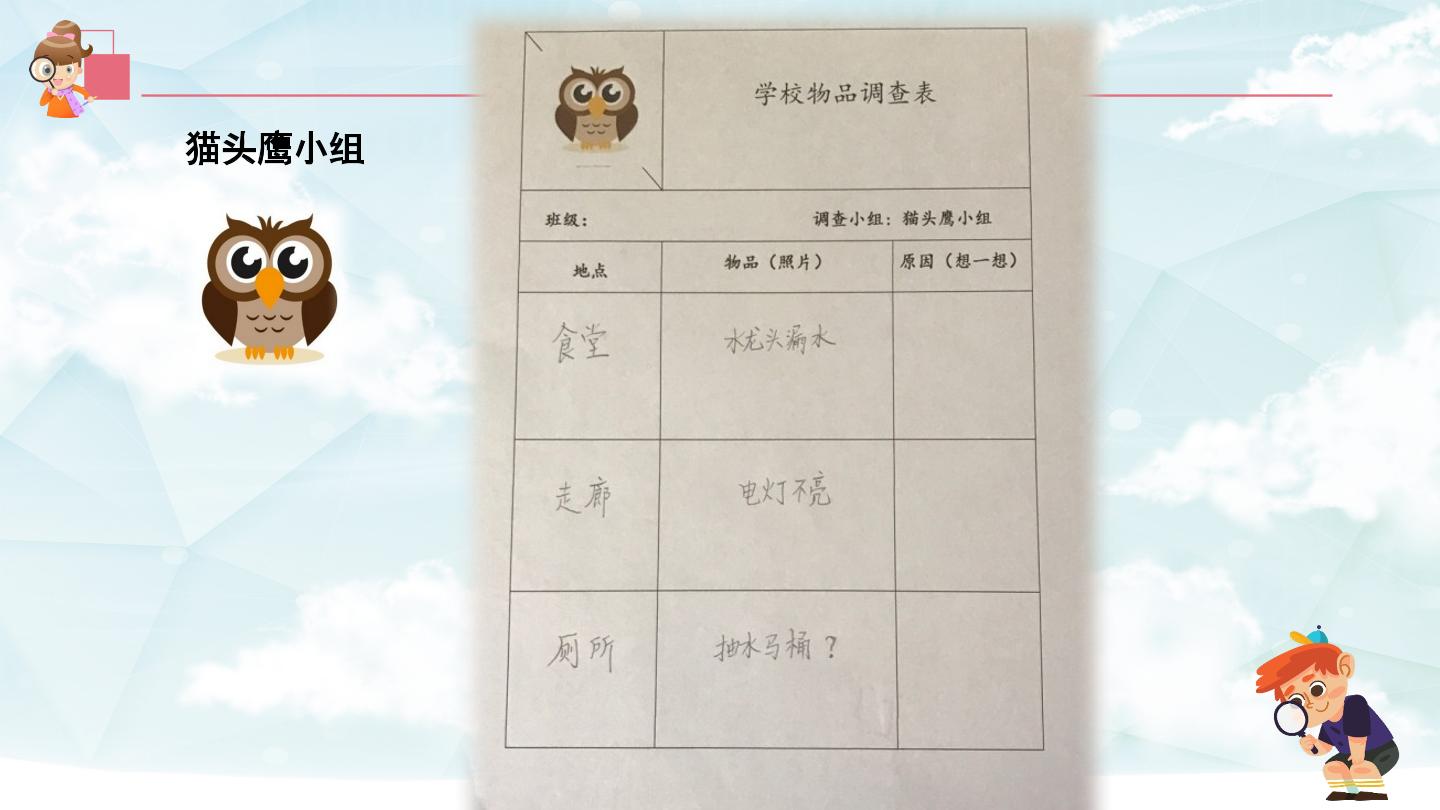 猫头鹰小组
学校物品调查表
班级： 调查小组：猫头鹰小组
地点 物品（照片） 原因（想一想）
食堂 水龙头漏水
走廊 电灯不亮
厕所 抽水马桶？